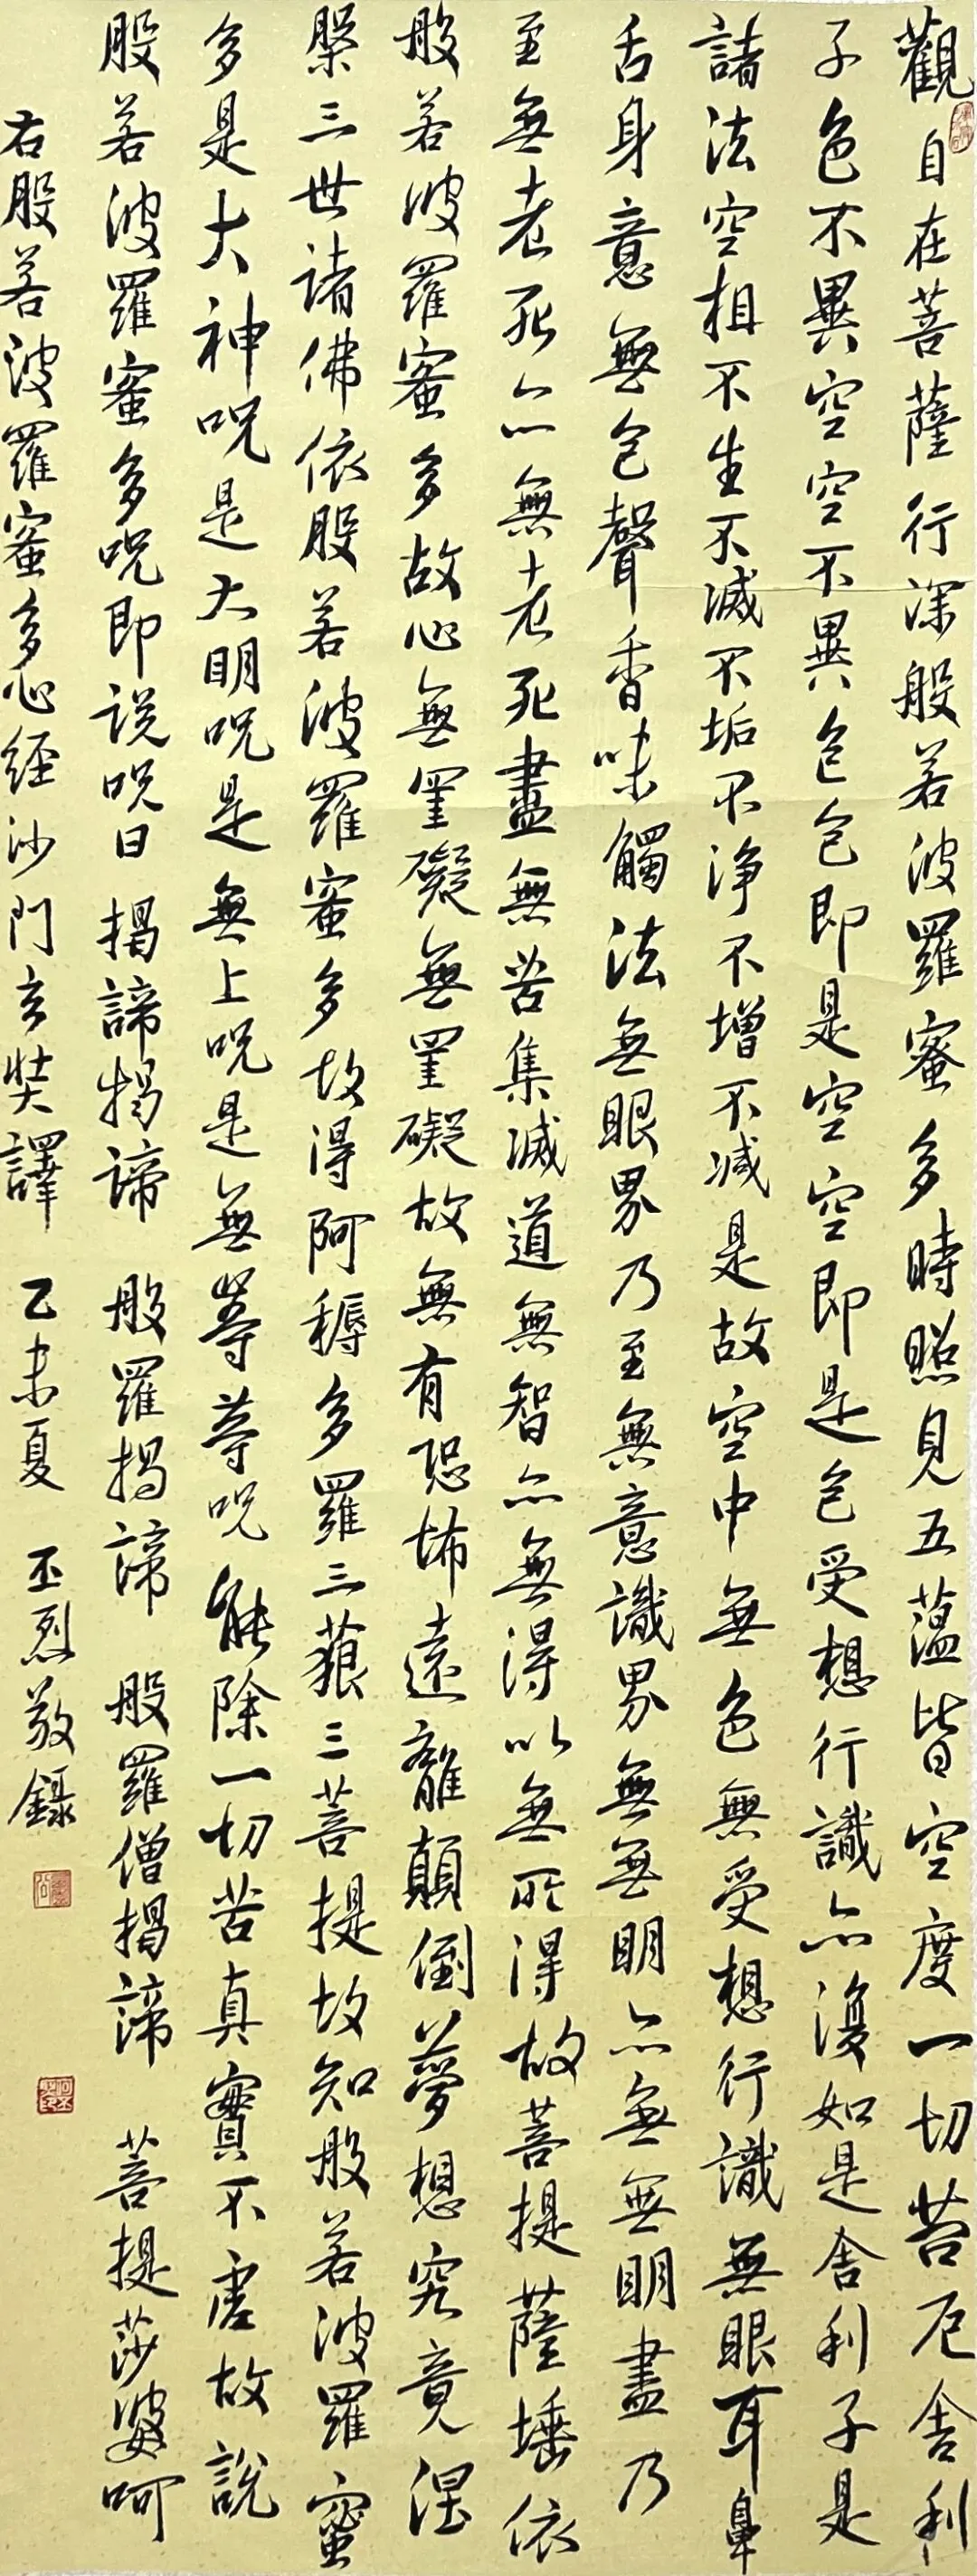 觀自在菩薩行深般若波羅蜜多時照見五蕴皆空度一切苦厄舍利
子色不異空空不異色色即是空空即是色受想行識亦復如是舍利子是
諸法空相不生不滅不垢不净不增不减是故空中無色無受想行識無眼耳鼻
舌身意無色聲香味觸法無眼界乃至無意識界無無明亦無無明盡乃
至無老死亦無老死盡無苦集滅道無智亦無得以無所得故菩提薩埵依
般若波羅蜜多故心無罣礙無罣礙故無有恐怖遠離顛倒夢想究竟涅
槃三世諸佛依般若波羅蜜多故得阿耨多羅三藐三菩提故知般若波羅蜜
多是大神呪是大明呪是無上呪是無等等呪能除一切苦真實不虛故說
般若波羅蜜多呪即說呪曰 揭諦揭諦 般羅揭諦 般羅僧揭諦 菩提莎婆呵
右般若波羅蜜多心經沙門玄奘譯 乙未夏 丕烈敬錄